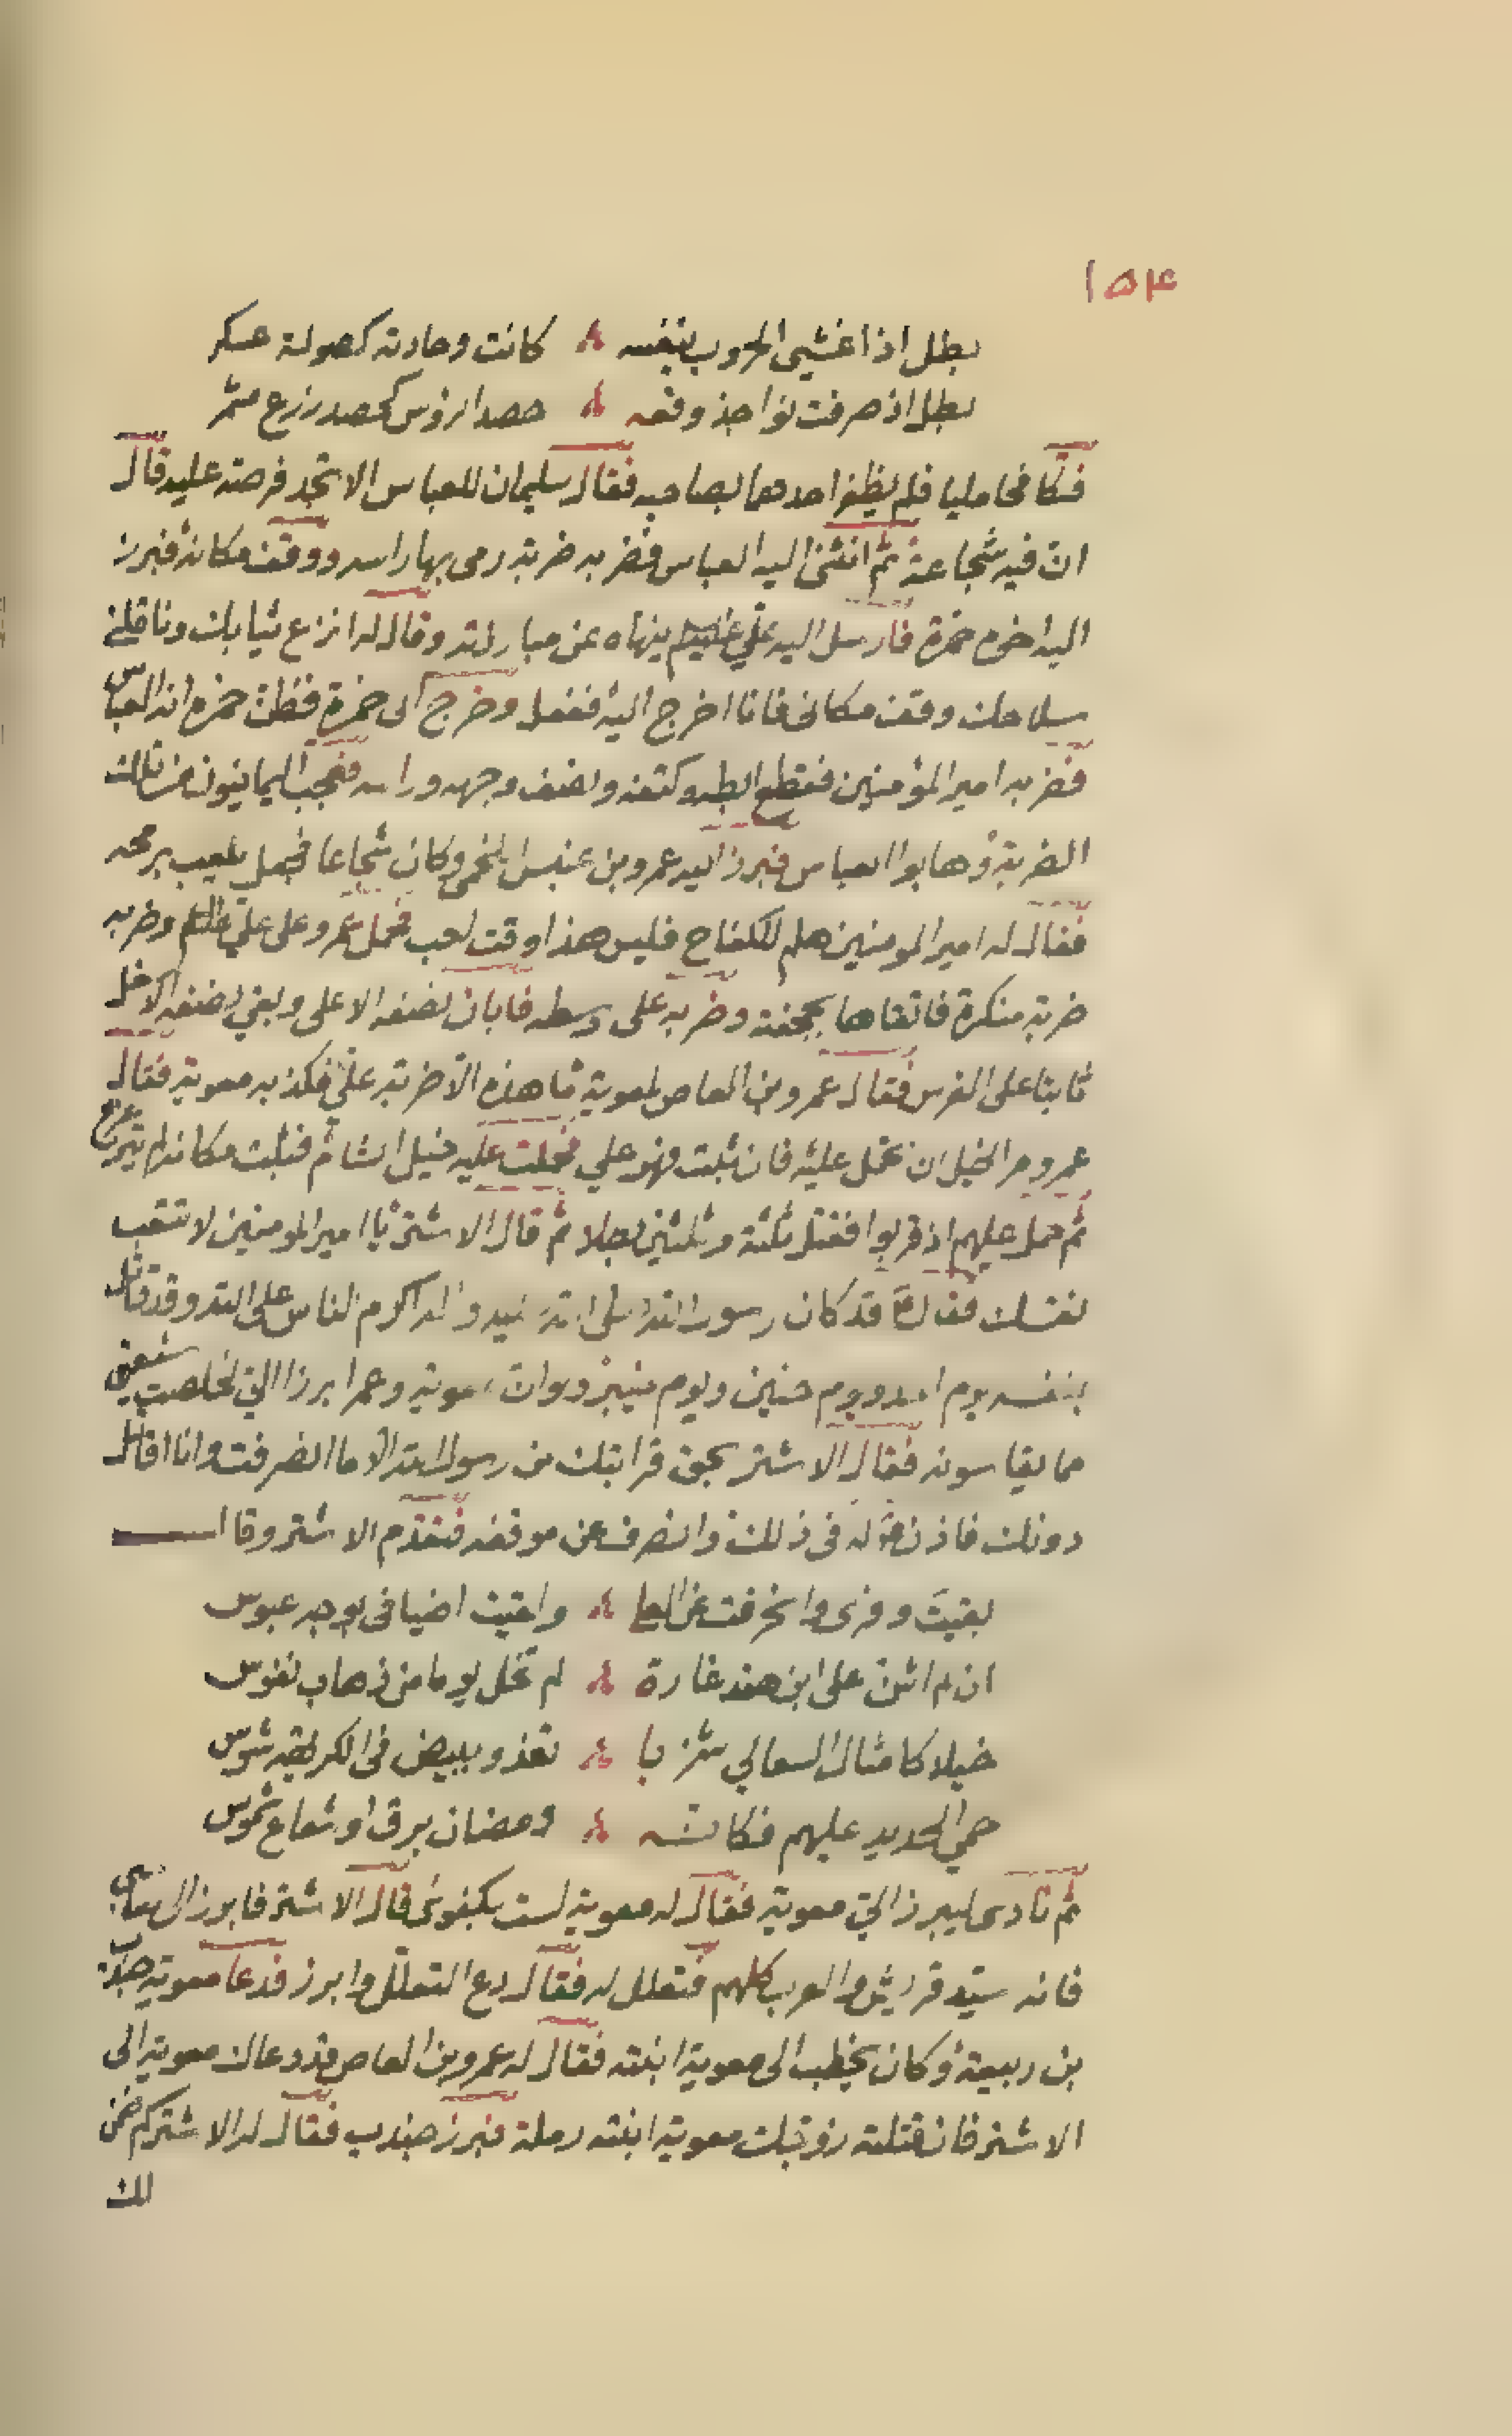 ١٥٤
بطل اذا غشي الحروب بنفسه كانت وحادته كصولة عسكر
بطل اذ صرفت نواجذ وقعه حصد الرؤس كحصد زرع مثمر
فتكافحا مليا فلم يظفر احدهما بصاحبه فقال سليمان للعباس الا تجد فرصة عليه قال
ان فيه شجاعة ثم انثنى اليه العباس فضربه ضربة رمى بها راسه ووقف مكانه فبرز
اليه اخوه حمزة فارسل اليه علي عليه السلم ينهاه عن مبارزته وقال له انزع ثيابك وناقلني
سلاحك وقف مكانى فانا اخرج اليه ففعل وخرج الى حمزة فظن حمزه انه العباس
فضربه امير المؤمنين فقطع ابطه وكتفه ونصف وجهه وراسه فعجب اليمانيون من تلك
الضربة وهابوا العباس فبرز اليه عمرو بن عنبس اللخمى وكان شجاعا فجعل يلعب برمحه
فقال له امير المومنين هلم للكفاح فليس هذا وقت لعب فحمل عمرو على علي وضربه
ضربة منكرة فاتقاها بحجفته وضربه على وسطه فابان نصفه الاعلى وبقي نصفه
ثابتا على الفرس فقال عمرو بن العاص لمعوية ما هذه الا ضربة علي فكذبه معوية فقال
عمرو مر الخيل ان تحمل عليه فان ثبت فهو علي فحملت عليه خيل الشام فثبت مكانه لم يتزعزع
ثم حمل عليهم اذ قربوا فقتل ثلثة وثلثين رجلا ثم قال الاشتر يا امير المومنين لا تتعب
نفسك فقال قد كان رسول الله صلى الله عليه واله اكرم الناس على الله وقد قاتل
بنفسه يوم احد ويوم حنين ويوم خيبر ولوان معوية وعمرا برزا الي لخلصت شيعتي
مما يقاسونه فقال الاشتر بحق قرابتك من رسول الله الا ما انصرفت وانا اقاتل
دونك فاذن له فى ذلك وانصرف عن موقفه فتقدم الاشتر وقال
بقيت وفرى وانحرفت عن العلا ولقيت اضيافى بوجه عبوس
ان لم اشن على ابن هند غارة لم تخل يوما من ذهاب نفوس
خيلا كامثال السعالي شزبا تغدو ببيض فى الكريهة شوس
حمي الحديد عليهم فكانه ومضان برق او شعاع شموس
ثم نادى ليبرز الي معوية فقال له معوية لست بكفوى قال الاشتر فابرز الى
فانه سيد قريش والعرب كلهم فتعلل له فقال دع التعلل وابرز فدعا معوية جندب
بن ربيعة وكان يخطب الى معوية ابنته فقال له عمرو بن العاص قد دعاك معوية الى
الاشتر فان قتلته زوجك معوية ابنته رملة فبرز جندب فقال له الاشتر كم ضمن
لك